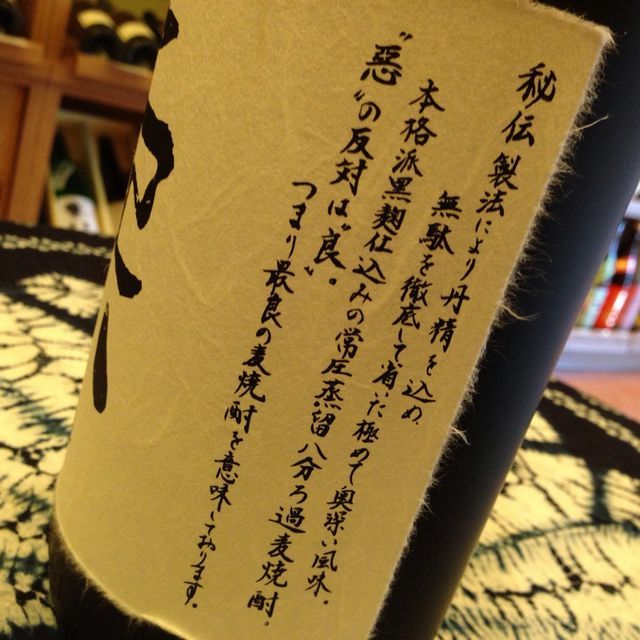 秘伝製法により丹精を込め、
無駄を徹底して省いた極めて奥深い風味。
本格派黒麹仕込みの常圧蒸留八分ろ過麦焼酎。
“悪”の反対は“良”。
つまり最良の麦焼酎を意味しております。